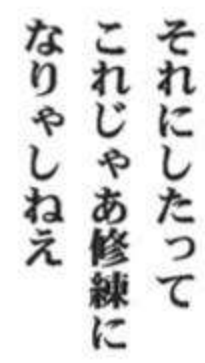 それにしたって
これじゃあ修練に
なりゃしねえ